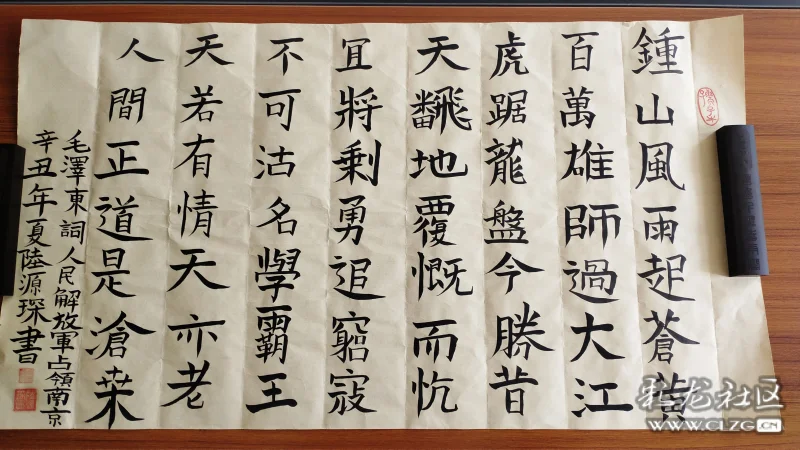 鍾山風雨起蒼黄
百萬雄師過大江
虎踞龍盤今勝昔
天飜地覆慨而忼
冝將剩勇追窮寇
不可沽名學霸王
天若有情天亦老
人間正道是滄桒
毛澤東詞人民解放軍占領南京
辛丑年夏陸源琛書
彩龙社区
WWW.CLZG.CN